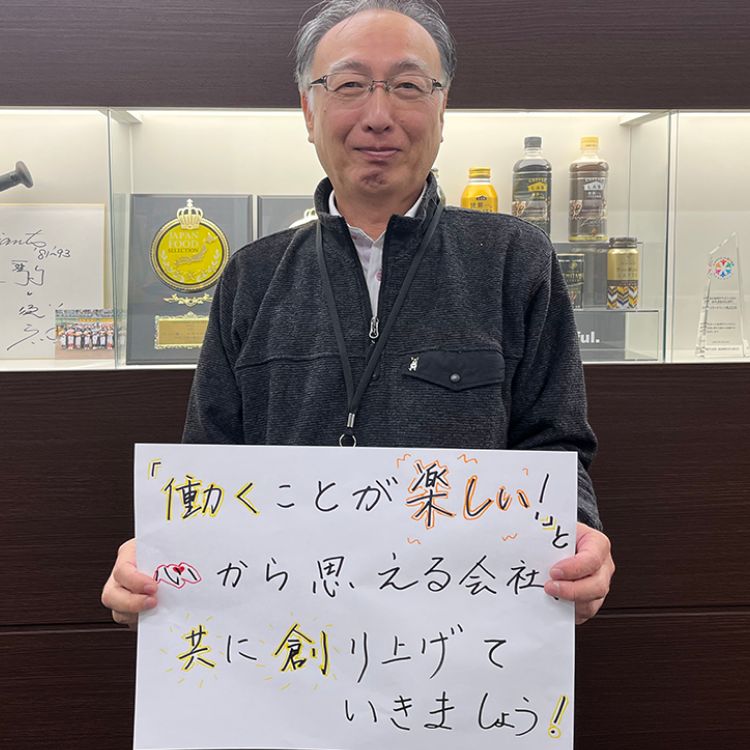 「働くことが楽しい!」と
心から思える会社、
共に創り上げて
いきましょう!
JAPAN
FOOD
SELECTION
'81~'93
ful.